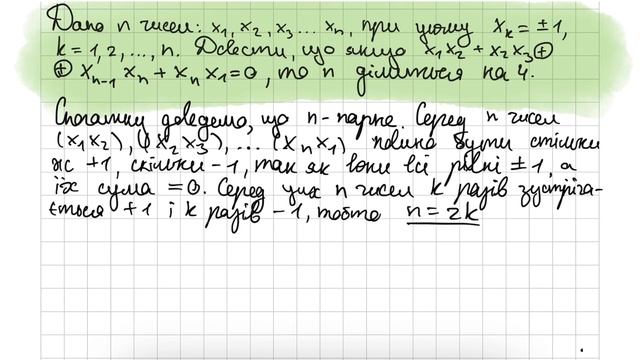 Дано n чисел: x₁, x₂, x₃ ... xₙ, при цьому xₖ = ±1,
k = 1, 2, ..., n. Довести, що якщо x₁x₂ + x₂x₃ ⊕
⊕ xₙ₋₁ xₙ + xₙ x₁ = 0, то n ділиться на 4.
Спочатку доведемо, що n - парне. Серед n чисел
(x₁x₂), (x₂x₃), ... (xₙx₁) повинно бути стільки
ж +1, скільки -1, так як вони всі рівні ±1, а
їх сума = 0. Серед цих n чисел k разів зустріча-
ється +1 і k разів -1, тобто n = 2k